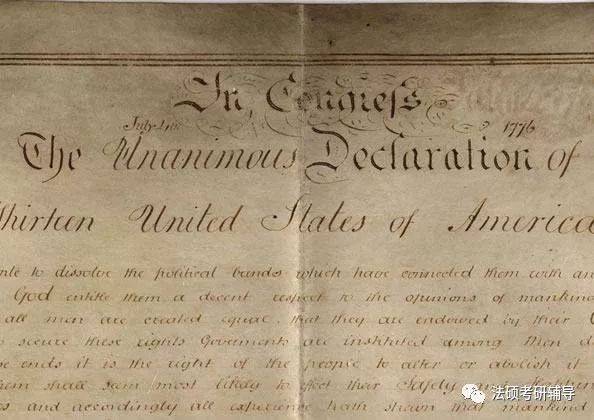 In Congress
July 4th 1776
The Unanimous Declaration of
Thirteen United States of America
to dissolve the political bands which have connected them with an
God entitle them a decent respect to the opinions of mankin
all men are created equal, that they are endowed by their C
secure these rights Goverments are instituted among Men d
ends it is the right of the people to alter or abolish it
hem shall seem most likely to effect their safety
and accordingly all experience hath shewn that mankind
法硕考研辅导